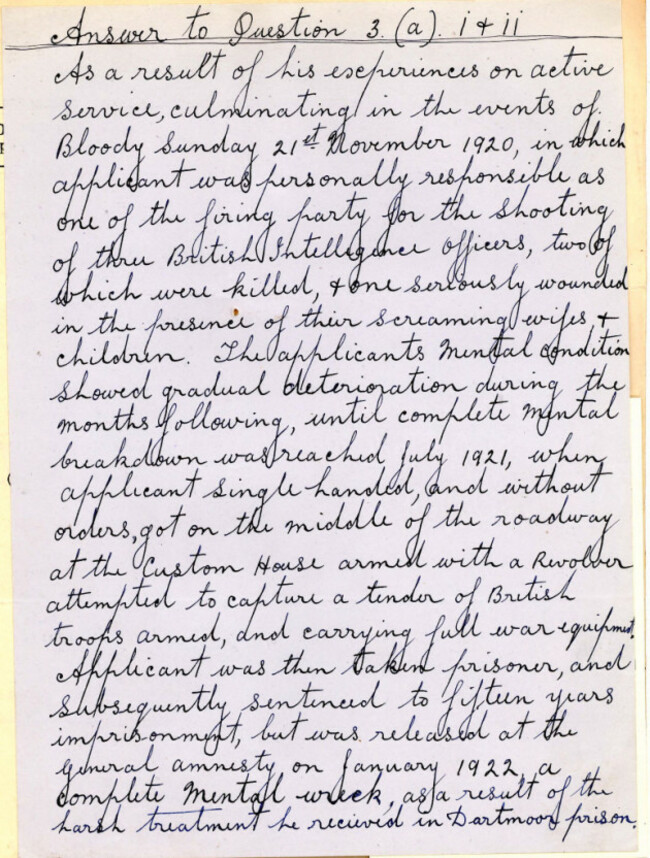 Answer to Question 3. (a). i + ii
As a result of his experiences on active
service, culminating in the events of
Bloody Sunday 21st November 1920, in which
applicant was personally responsible as
one of the firing party for the shooting
of three British Intelligence Officers, two of
which were killed, + one seriously wounded
in the presence of their screaming wifes, +
children. The applicants Mental condition
showed gradual deterioration during the
months following, until complete Mental
breakdown was reached July 1921, when
applicant single-handed, and without
orders, got on the middle of the roadway
at the Custom House armed with a Revolver
attempted to capture a tender of British
troops armed, and carrying full war equipment.
Applicant was then taken prisoner, and
subsequently sentenced to fifteen years
imprisonment, but was released at the
General amnesty on January 1922, a
complete Mental wreck, as a result of the
harsh treatment he recieved in Dartmoor prison.